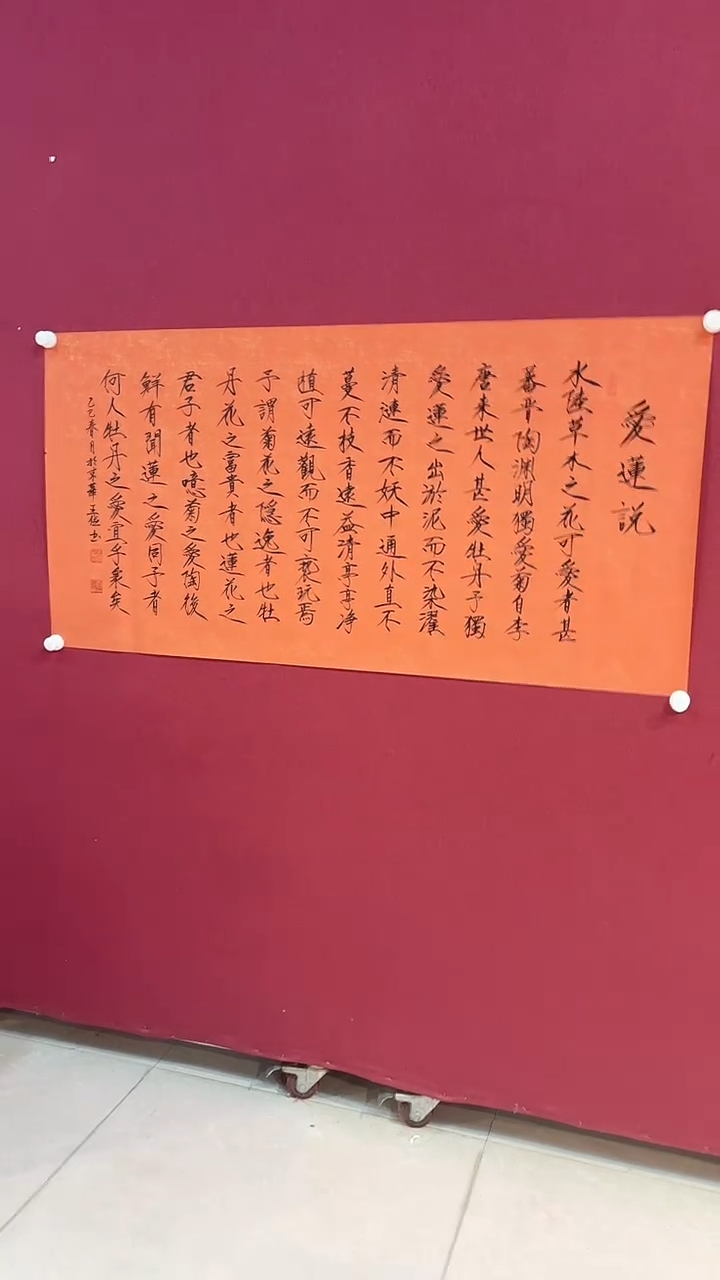 愛蓮説
水陸草木之花可愛者甚
蕃晉陶渊明獨愛菊自李
唐来世人甚愛牡丹予獨
愛蓮之出淤泥而不染濯
清漣而不妖中通外直不
蔓不枝香遠益清亭亭净
植可遠觀而不可褻玩焉
予謂菊花之隐逸者也牡
丹花之富貴者也蓮花之
君子者也噫菊之愛陶後
鮮有聞蓮之愛同予者
何人牡丹之愛宜乎衆矣
乙乙春月於